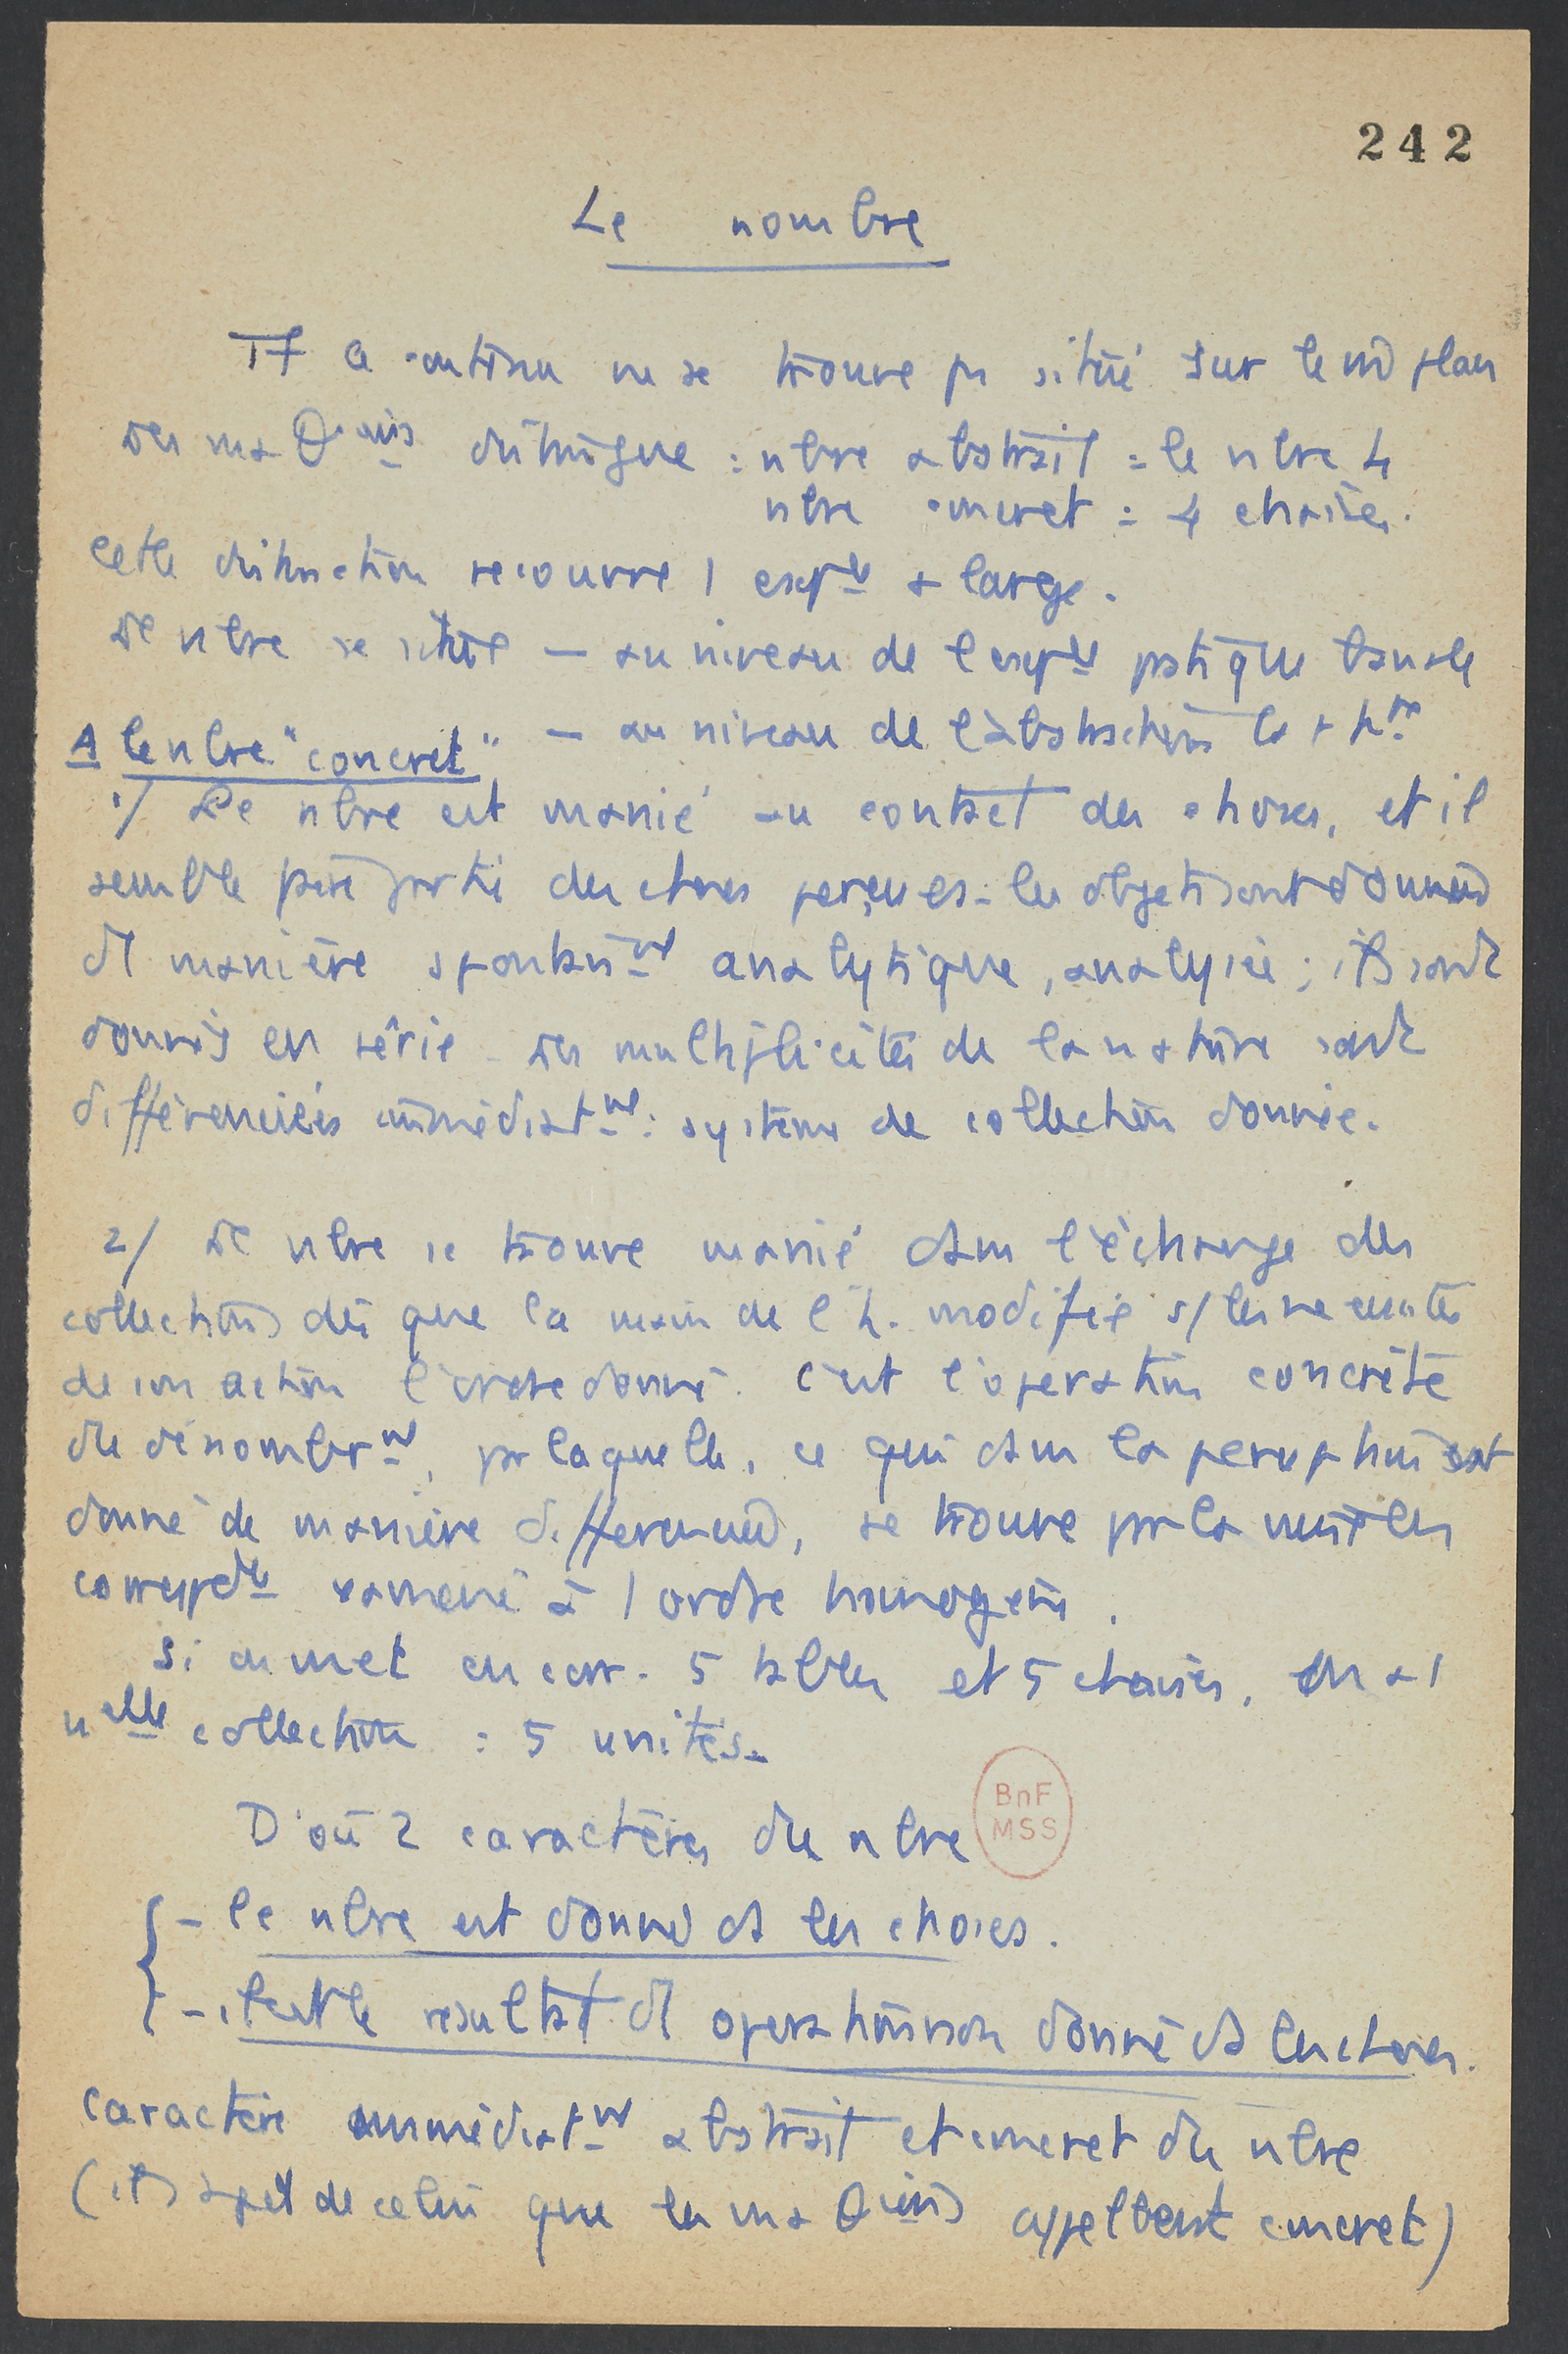 242
Le nombre
Tt ce contenu ne se trouve pas situé sur le m̂ plan
Les maθ.ciens distingue : nbre abstrait = le nbre 4
nbre concret = 4 chaises.
Cette distinction recouvre 1 exp.ce + large.
Le nbre se situe — au niveau de l'exp.ce pratique banale
— au niveau de l'abstraction la +
A le nbre "concret"
1/ Le nbre est manié au contact des choses, et il
semble faire partie des choses perçues. les objets sont donnés
de manière spontané.mt analytique, analysée ; ils sont
donnés en série. Les multiplicités de la nature sont
différenciées immédiat.mt : système de collection donnée.
2/ Le nbre se trouve manié dans l'échange des
collections dès que la main de l'h. modifie s/ les nécessités
de son action l'ordre donné. C'est l'opération concrète
du dénombr.mt, par laquelle, ce qui dans la perception est
donné de manière différencié, se trouve par la mise en
corresp.dce ramené à 1 ordre homogène.
Si on met en corr. 5 tables et 5 chaises, on a 1
nelle collection : 5 unités.
D'où 2 caractères du nbre
BnF
MSS
— le nbre est donné ds les choses.
— il est le résultat d' opérations non donné ds les choses.
Caractère immédiat.mt abstrait et concret du nbre
(il s'agit de celui que les maθ.ciens appellent concret)